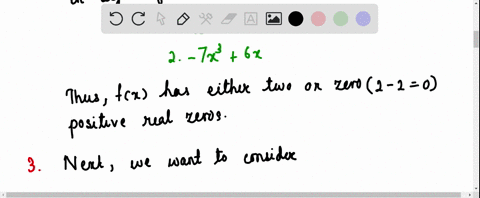 2. -7x³ + 6x
Thus, f(x) has either two or zero (2-2=0)
positive real zeros.
3. Next, we want to consider